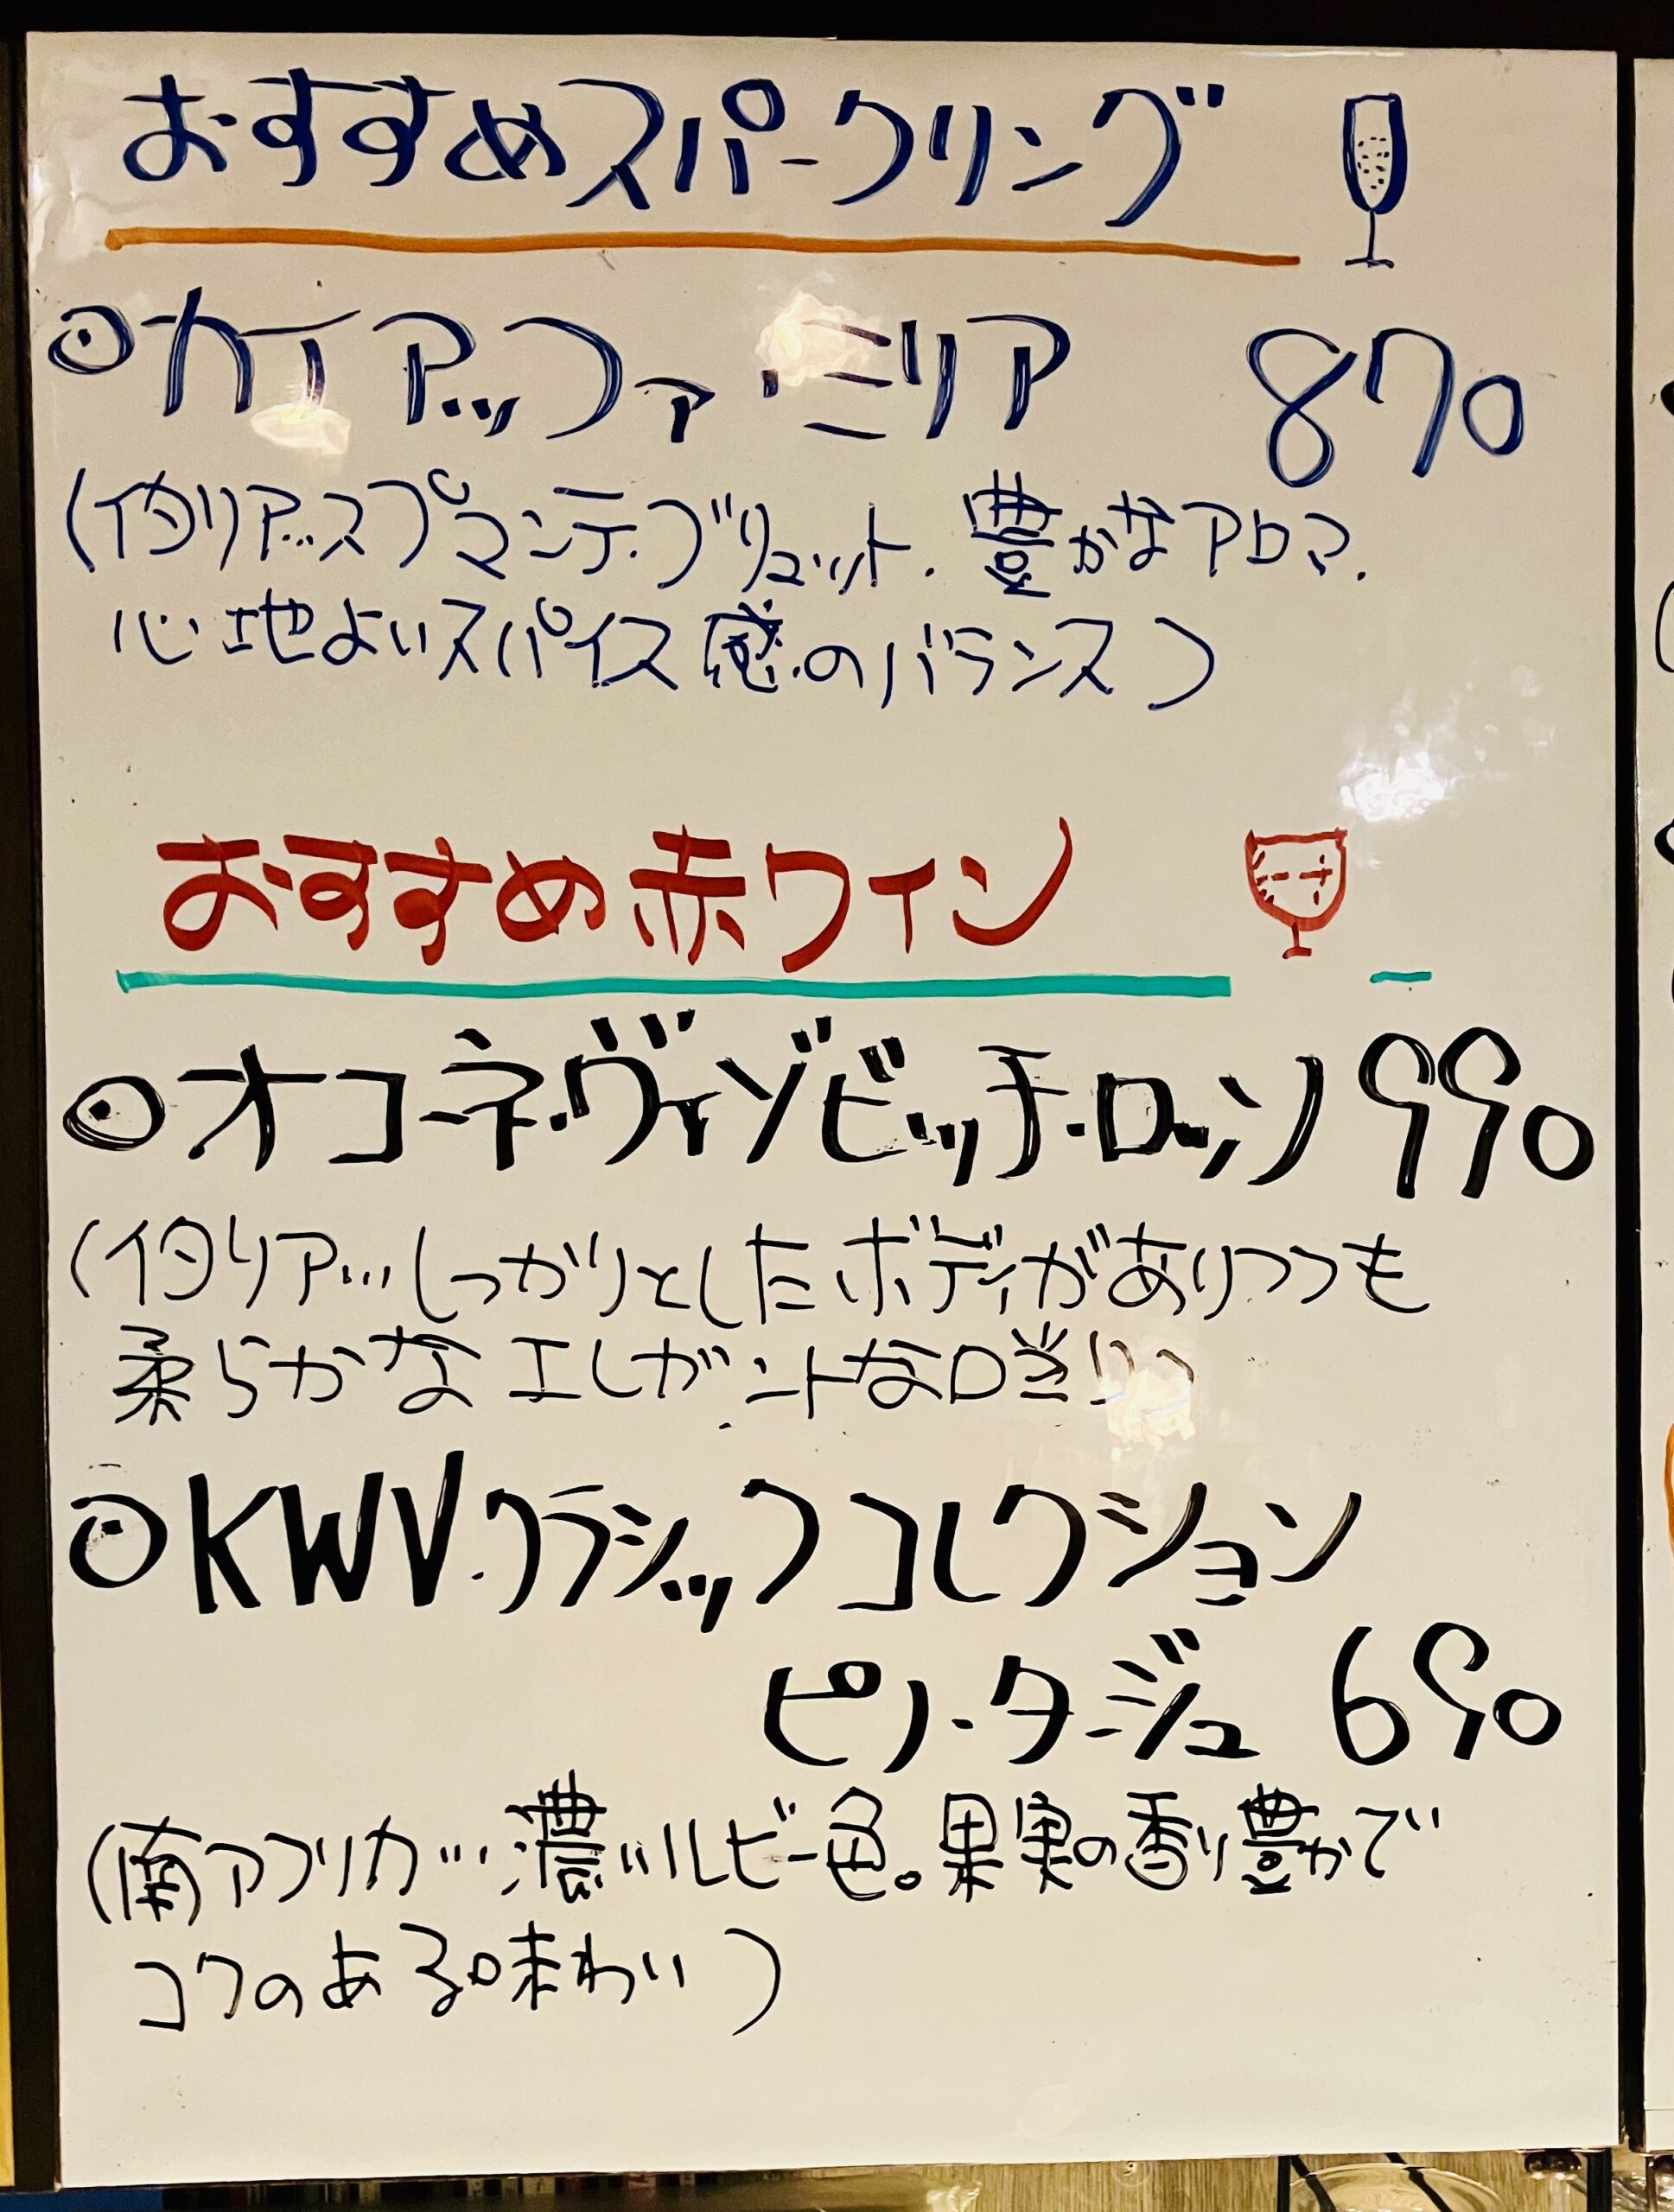 おすすめスパークリング
◉カイアッファ・ミリア 870
(イタリア…スプマンテ・ブリュット. 豊かなアロマ.
心地よいスパイス感.のバランス)
おすすめ赤ワイン
◉オコーネ・ヴィゾビッチ・ロッソ 990
(イタリア…しっかりとしたボディがありつつも
柔らかなエレガントな口当り)
◉KWV.クラシックコレクション
ピノ・タージュ 690
(南アフリカ…濃いルビー色。果実の香り豊かで
コクのある味わい)